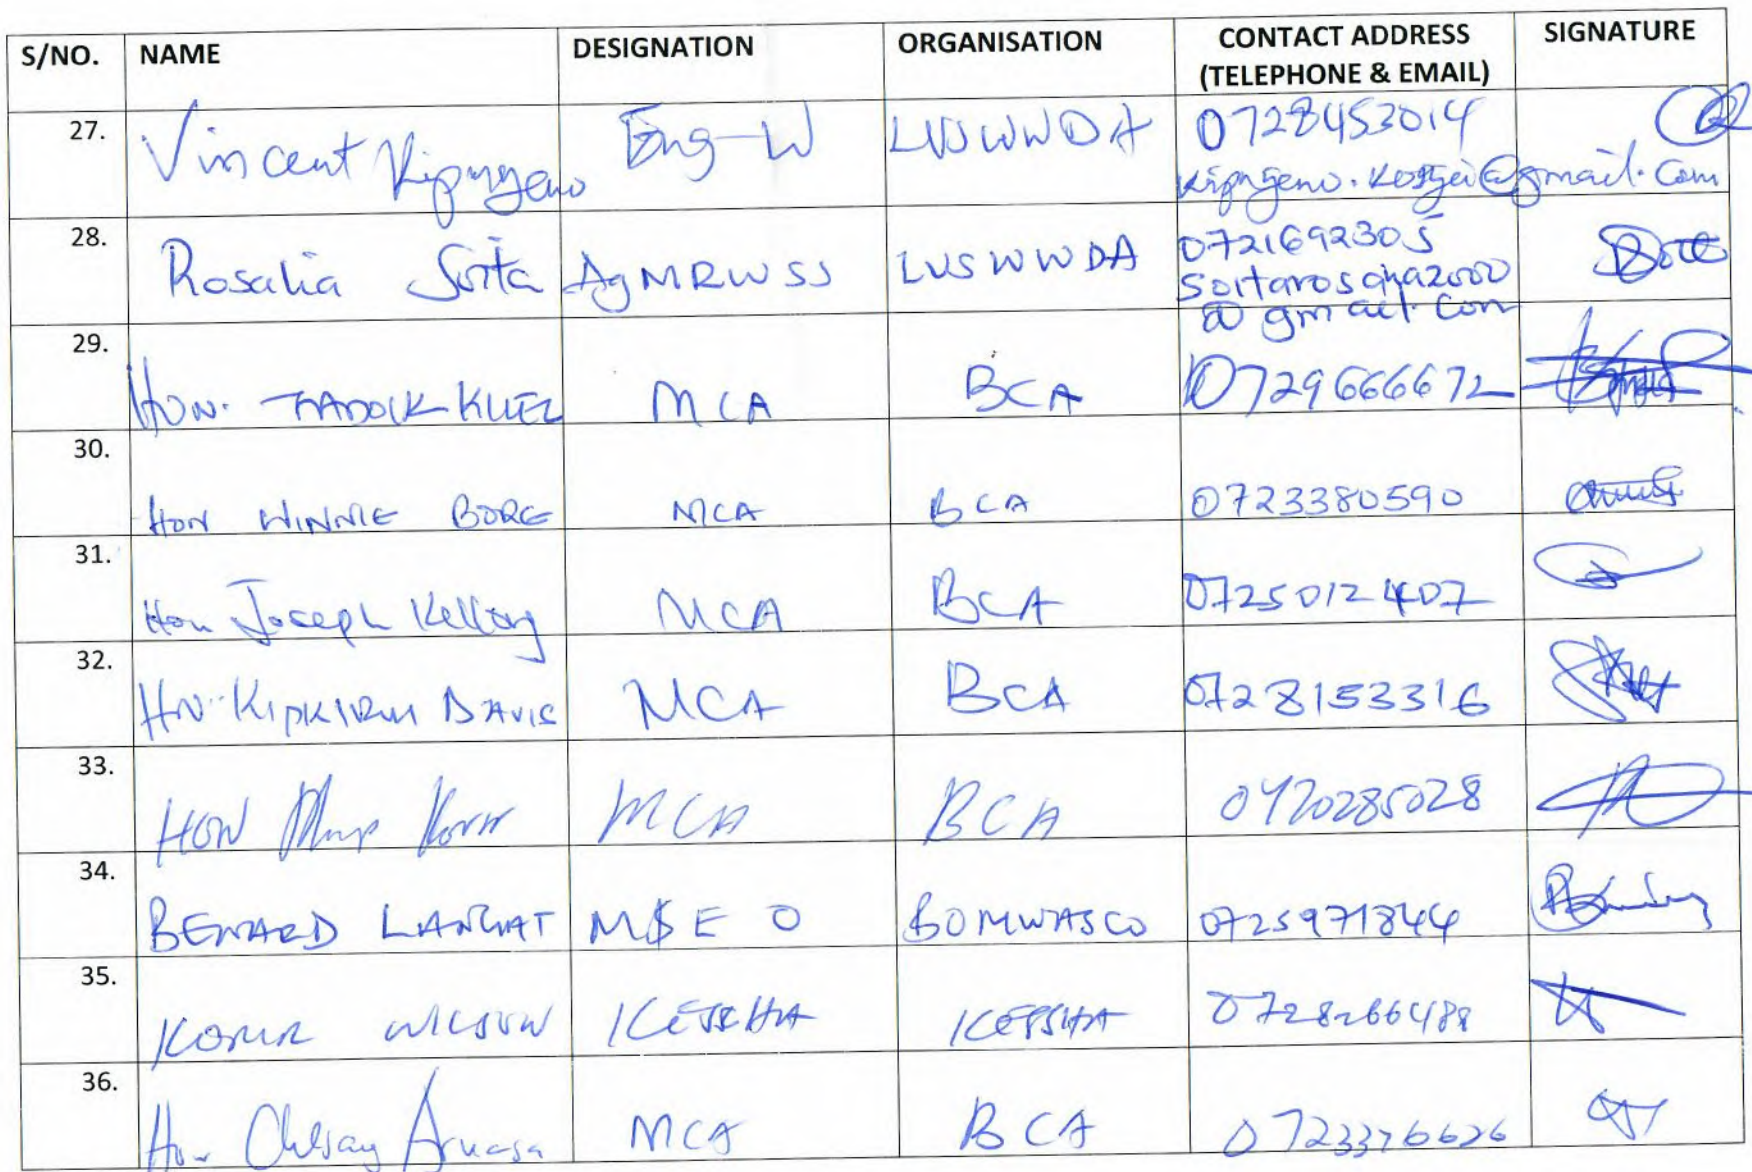 S/NO. NAME DESIGNATION ORGANISATION CONTACT ADDRESS (TELEPHONE & EMAIL) SIGNATURE
27. Vincent Kipngeno Eng-W LVSWWDA 0728453014
kipngeno.kosgei@gmail.com
28. Rosalia Soita AgMRWSS LVSWWDA 0721692305
@gmail.com
29. HON. MCA BCA 0729666672
30. HON WINNIE BORE MCA BCA 0723380590
31. Hon Joseph MCA BCA 0725012407
32. HON. DAVIS MCA BCA 0728153316
33. HON MCA BCA 0720285028
34. BENARD LANGAT BOMWASCO 0725971844
35. KORIR WILSON KEPSHA KEPSHA
36. Hon MCA BCA 0723376626